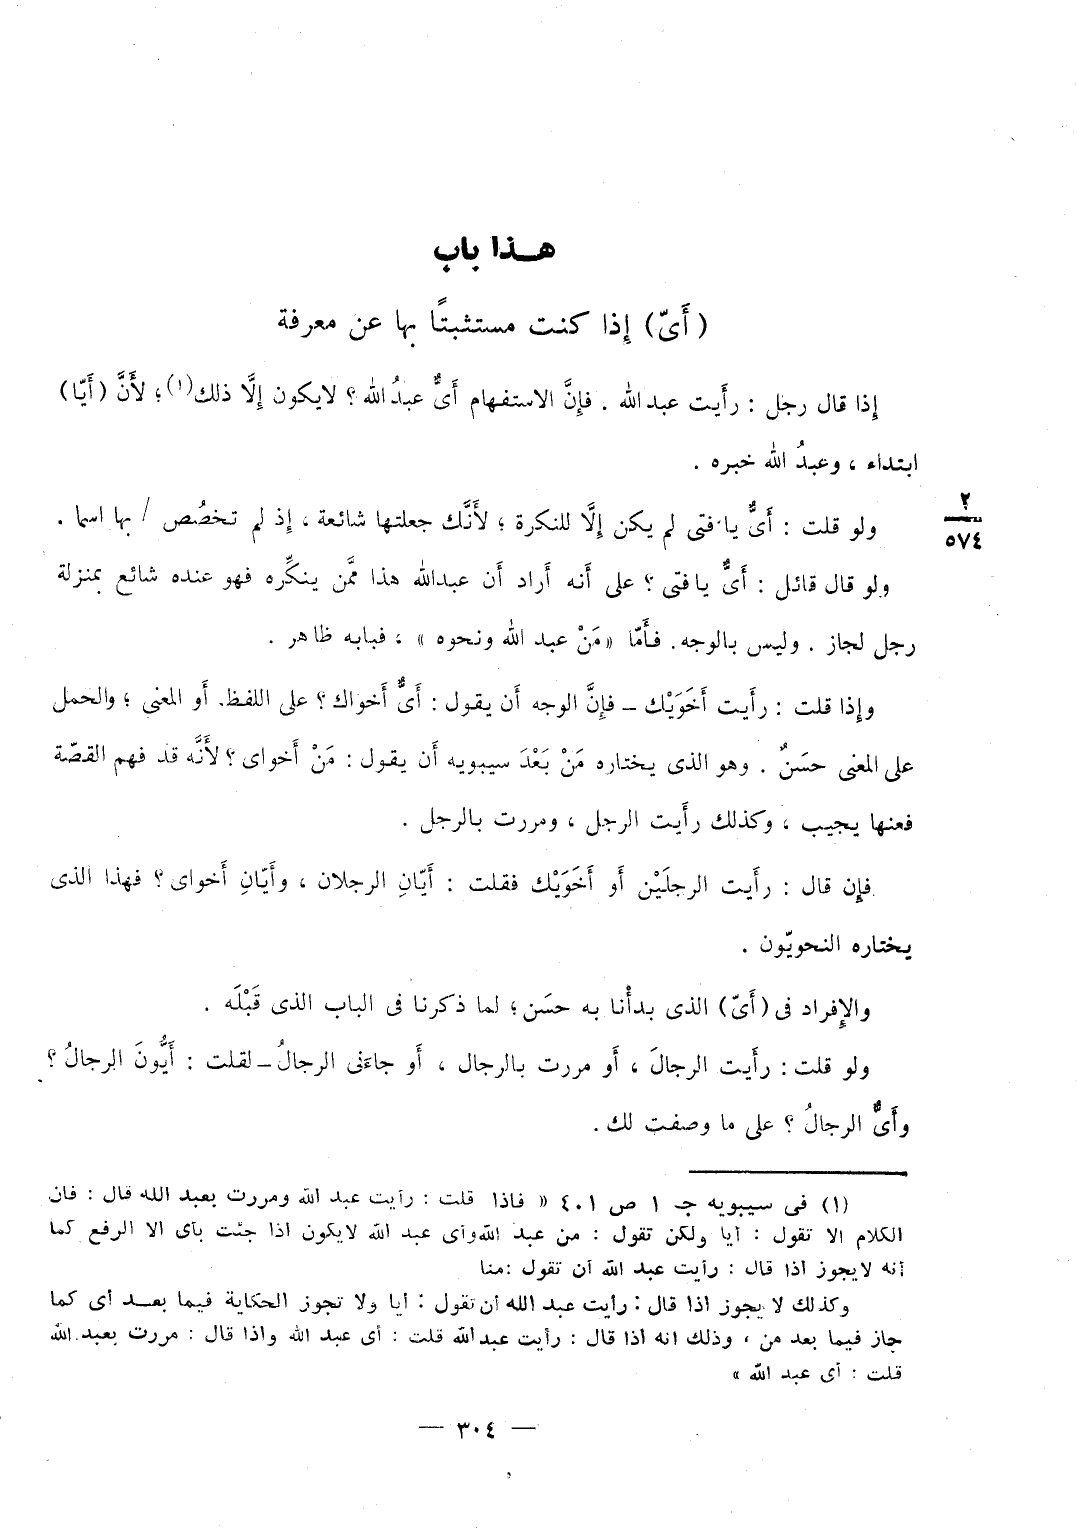 هـذا باب
( أَىّ ) إذا كنت مستثبتًا بها عن معرفة
إذا قال رجل : رأيت عبد الله . فإنَّ الاستفهام أَىٌّ عبدُ الله ؟ لايكون إلَّا ذلك(١) ؛ لأَنَّ (أَيّا)
ابتداء ، وعبدُ الله خبره .
ولو قلت : أَىٌّ يا فتى لم يكن إلَّا للنكرة ؛ لأَنَّك جعلتها شائعة ، إذ لم تخصُص / بها اسما .
٢
٥٧٤
ولو قال قائل : أَىٌّ يا فتى ؟ على أَنه أراد أَن عبدالله هذا ممَّن ينكِّره فهو عنده شائع بمنزلة
رجل لجاز . وليس بالوجه. فأَمّا « مَنْ عبد الله ونحوه » ، فبابه ظاهر .
وإذا قلت : رأيت أَخَوَيْك – فإنَّ الوجه أَن يقول : أَىٌّ أخواك ؟ على اللفظ. أَو المعنى ؛ والحمل
على المعنى حسَنٌ . وهو الذى يختاره مَنْ بَعْدَ سيبويه أَن يقول : مَنْ أَخواى ؟ لأَنَّه قد فهم القصّة
فعنها يجيب ، وكذلك رأَيت الرجل ، ومررت بالرجل .
فإن قال : رأَيت الرجلَيْن أَو أَخَوَيْك فقلت : أَيّانِ الرجلان ، وأَيّانِ أَخواى ؟ فهذا الذى
يختاره النحويّون .
والإفراد فى (أَىّ) الذى بدأْنا به حسَن ؛ لما ذكرنا فى الباب الذى قَبْلَه .
ولو قلت : رأَيت الرجالَ ، أَو مررت بالرجال ، أَو جاءَنى الرجالُ – لقلت : أَيُّونَ الرجالُ ؟
وأَىٌّ الرجالُ ؟ على ما وصفت لك .
(١) فى سيبويه جـ ١ ص ٤٠١ « فاذا قلت : رأيت عبد الله ومررت بعبد الله قال : فان
الكلام الا تقول : أيا ولكن تقول : من عبد الله وأى عبد الله لايكون اذا جئت بأى الا الرفع كما
أنه لايجوز اذا قال : رأيت عبد الله أن تقول :منا
وكذلك لا يجوز اذا قال : رأيت عبد الله أن تقول : أيا ولا تجوز الحكاية فيما بعـد أى كما
جاز فيما بعد من ، وذلك انه اذا قال : رأيت عبد الله قلت : أى عبد الله واذا قال : مررت بعبد الله
قلت : أى عبد الله »
— ٣٠٤ —